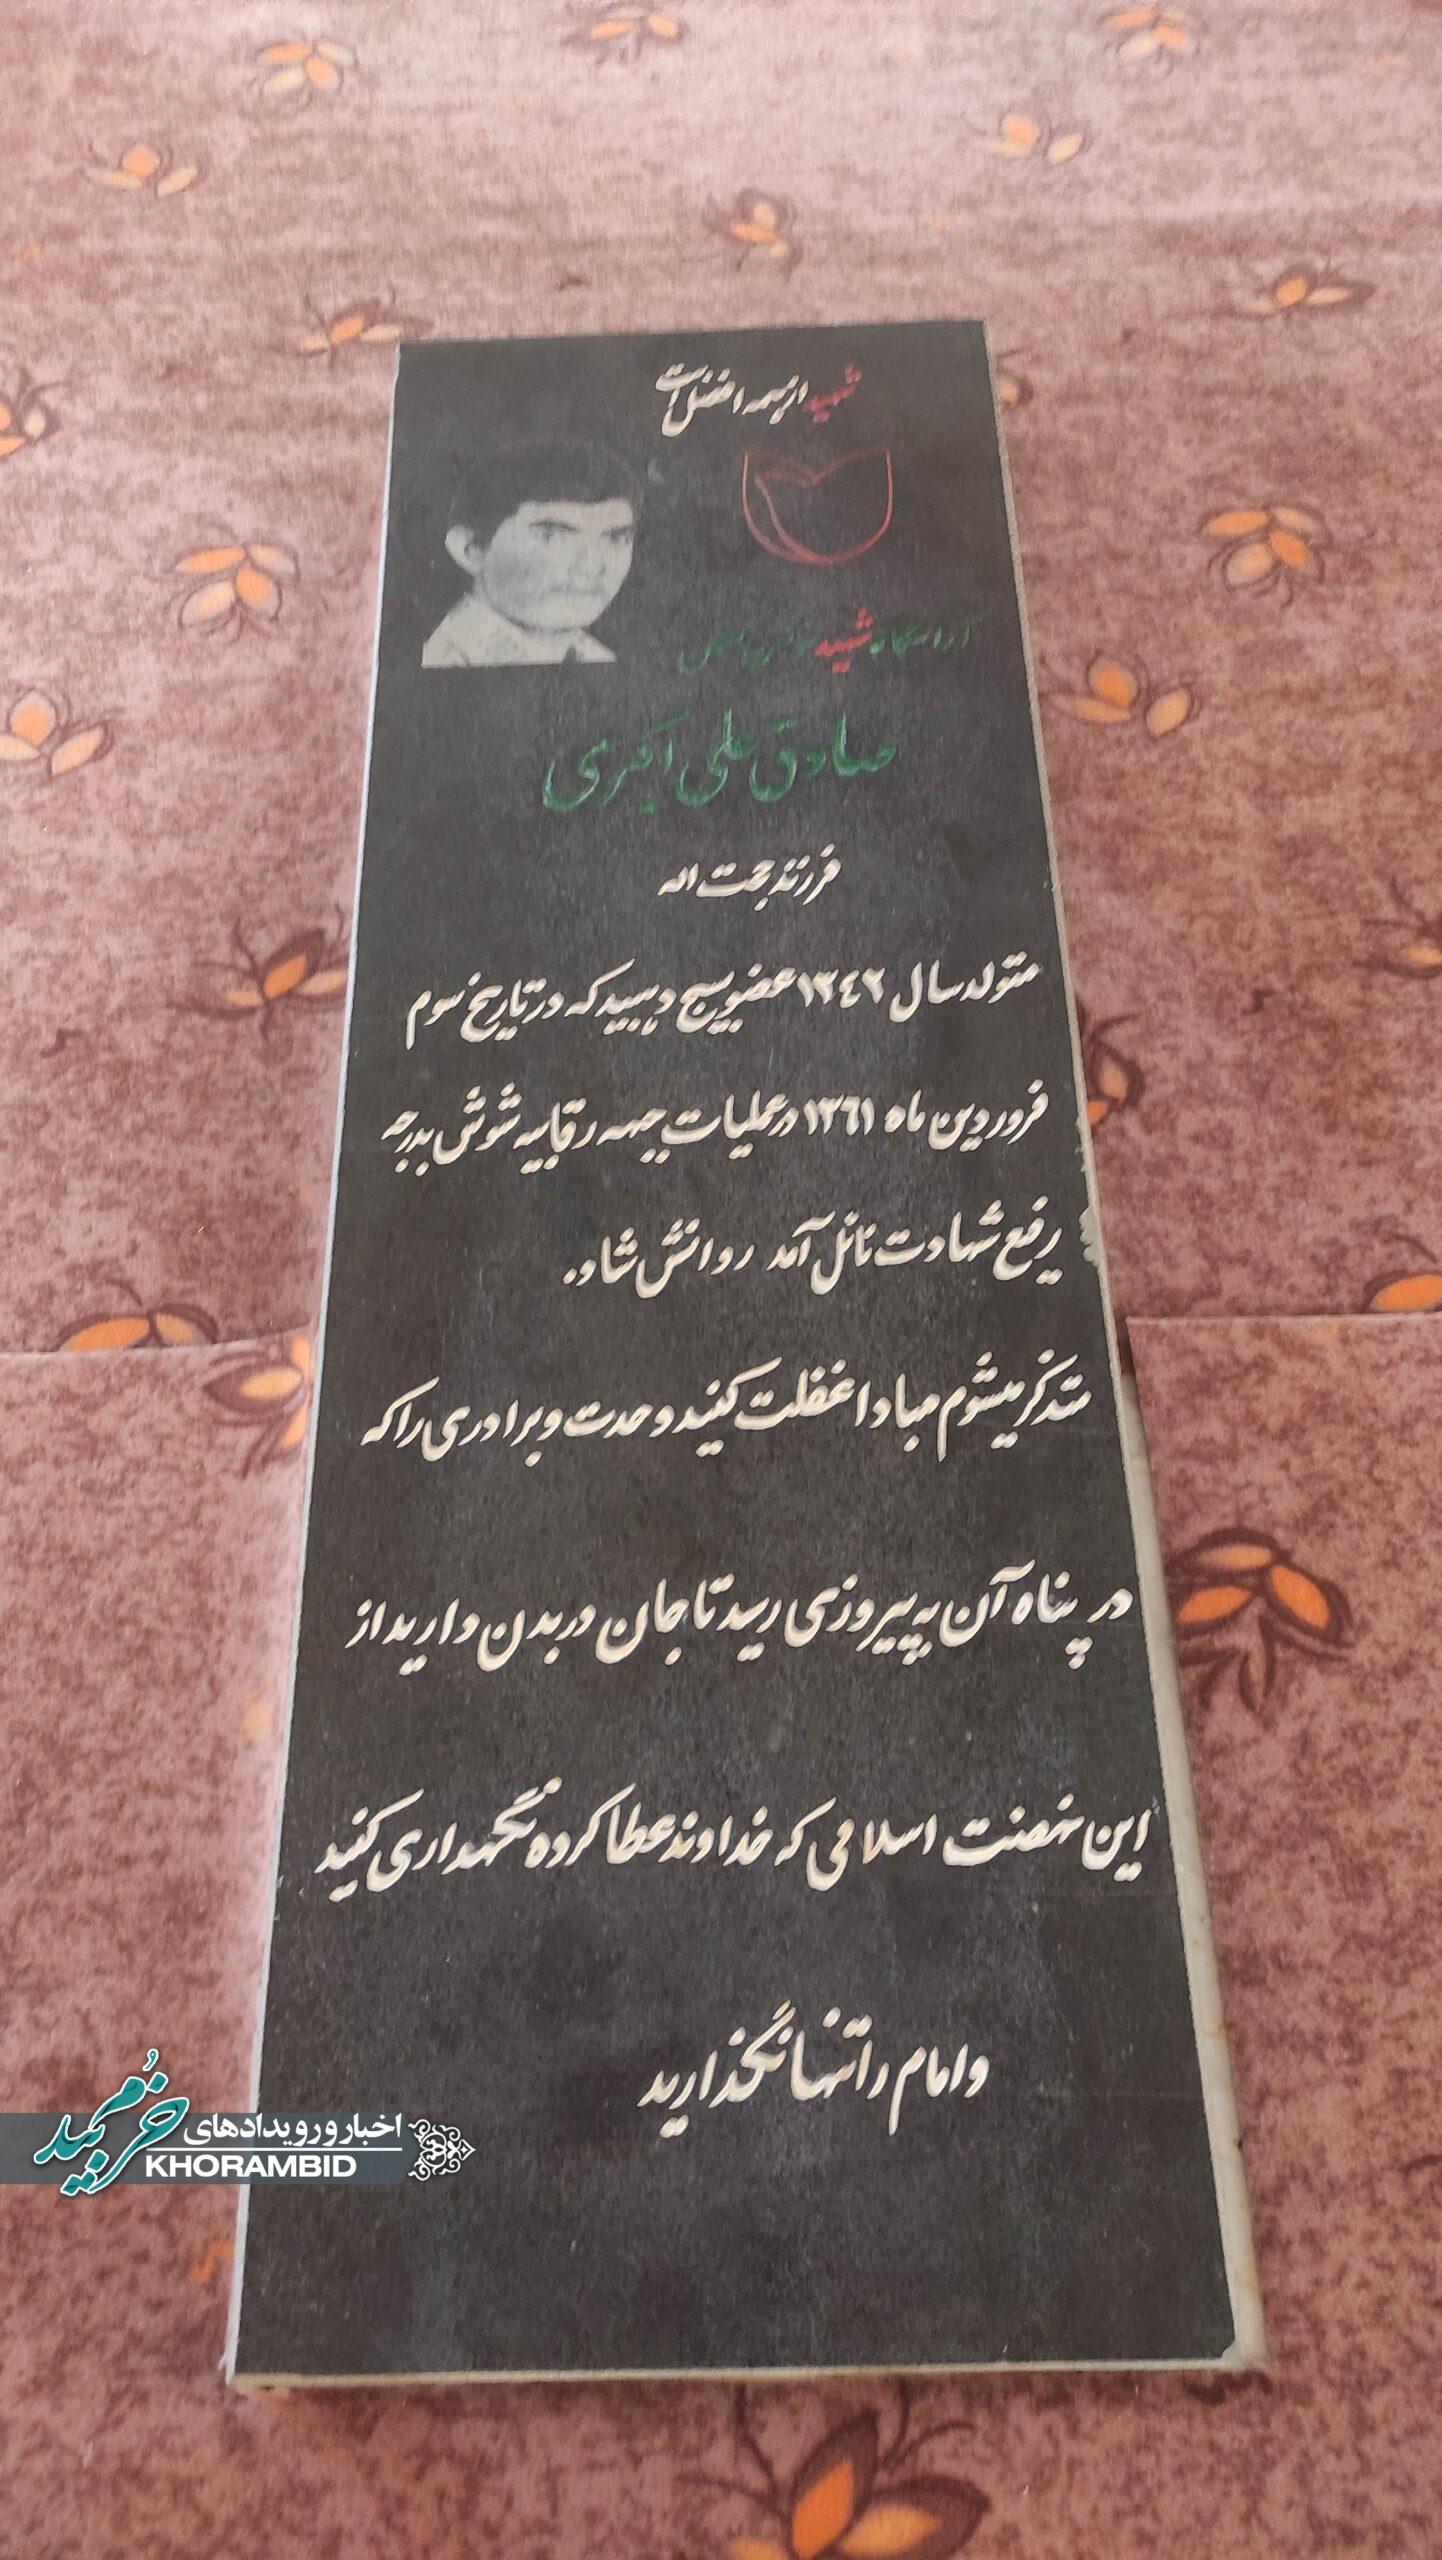 شهید از همه افضل است
آرامگاه شهید خونین کفن
صادق علی اکبری
فرزند حجت اله
متولد سال ١٣٤٢ عضو بسیج دهبید که در تاریخ سوم
فروردین ماه ١٣٦١ در عملیات جبهه رقابیه شوش بدرجه
رفیع شهادت نائل آمد روانش شاد.
متذکر میشوم مبادا غفلت کنید وحدت و برادری را که
در پناه آن به پیروزی رسید تا جان در بدن دارید از
این نهضت اسلامی که خداوند عطا کرده نگهداری کنید
و امام را تنها نگذارید
اخبار و رویدادهای
خرمبید
KHORAMBID